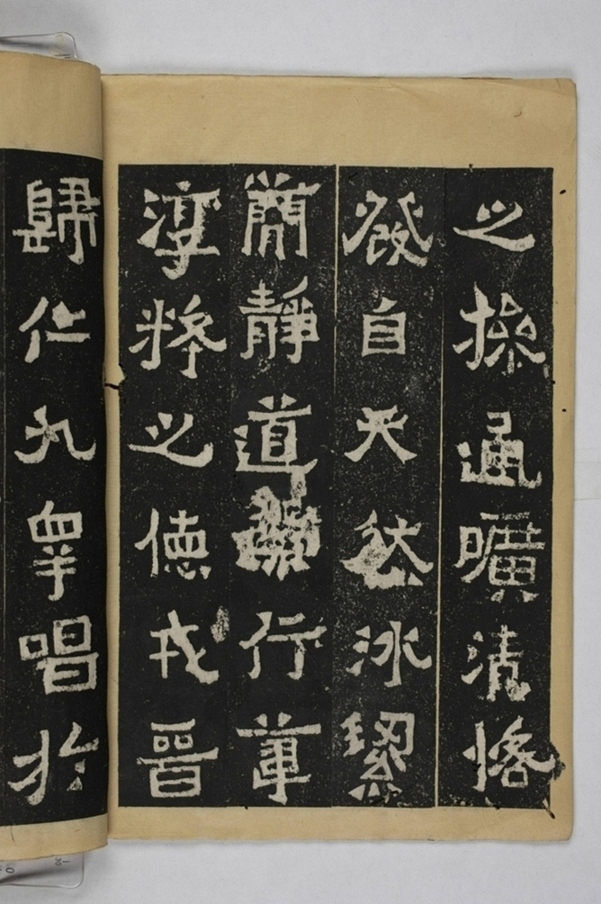 之操通曠清恪
發自天然冰絜
簡靜道兼行葦
淳粹之德戎晉
歸仁九皋唱於